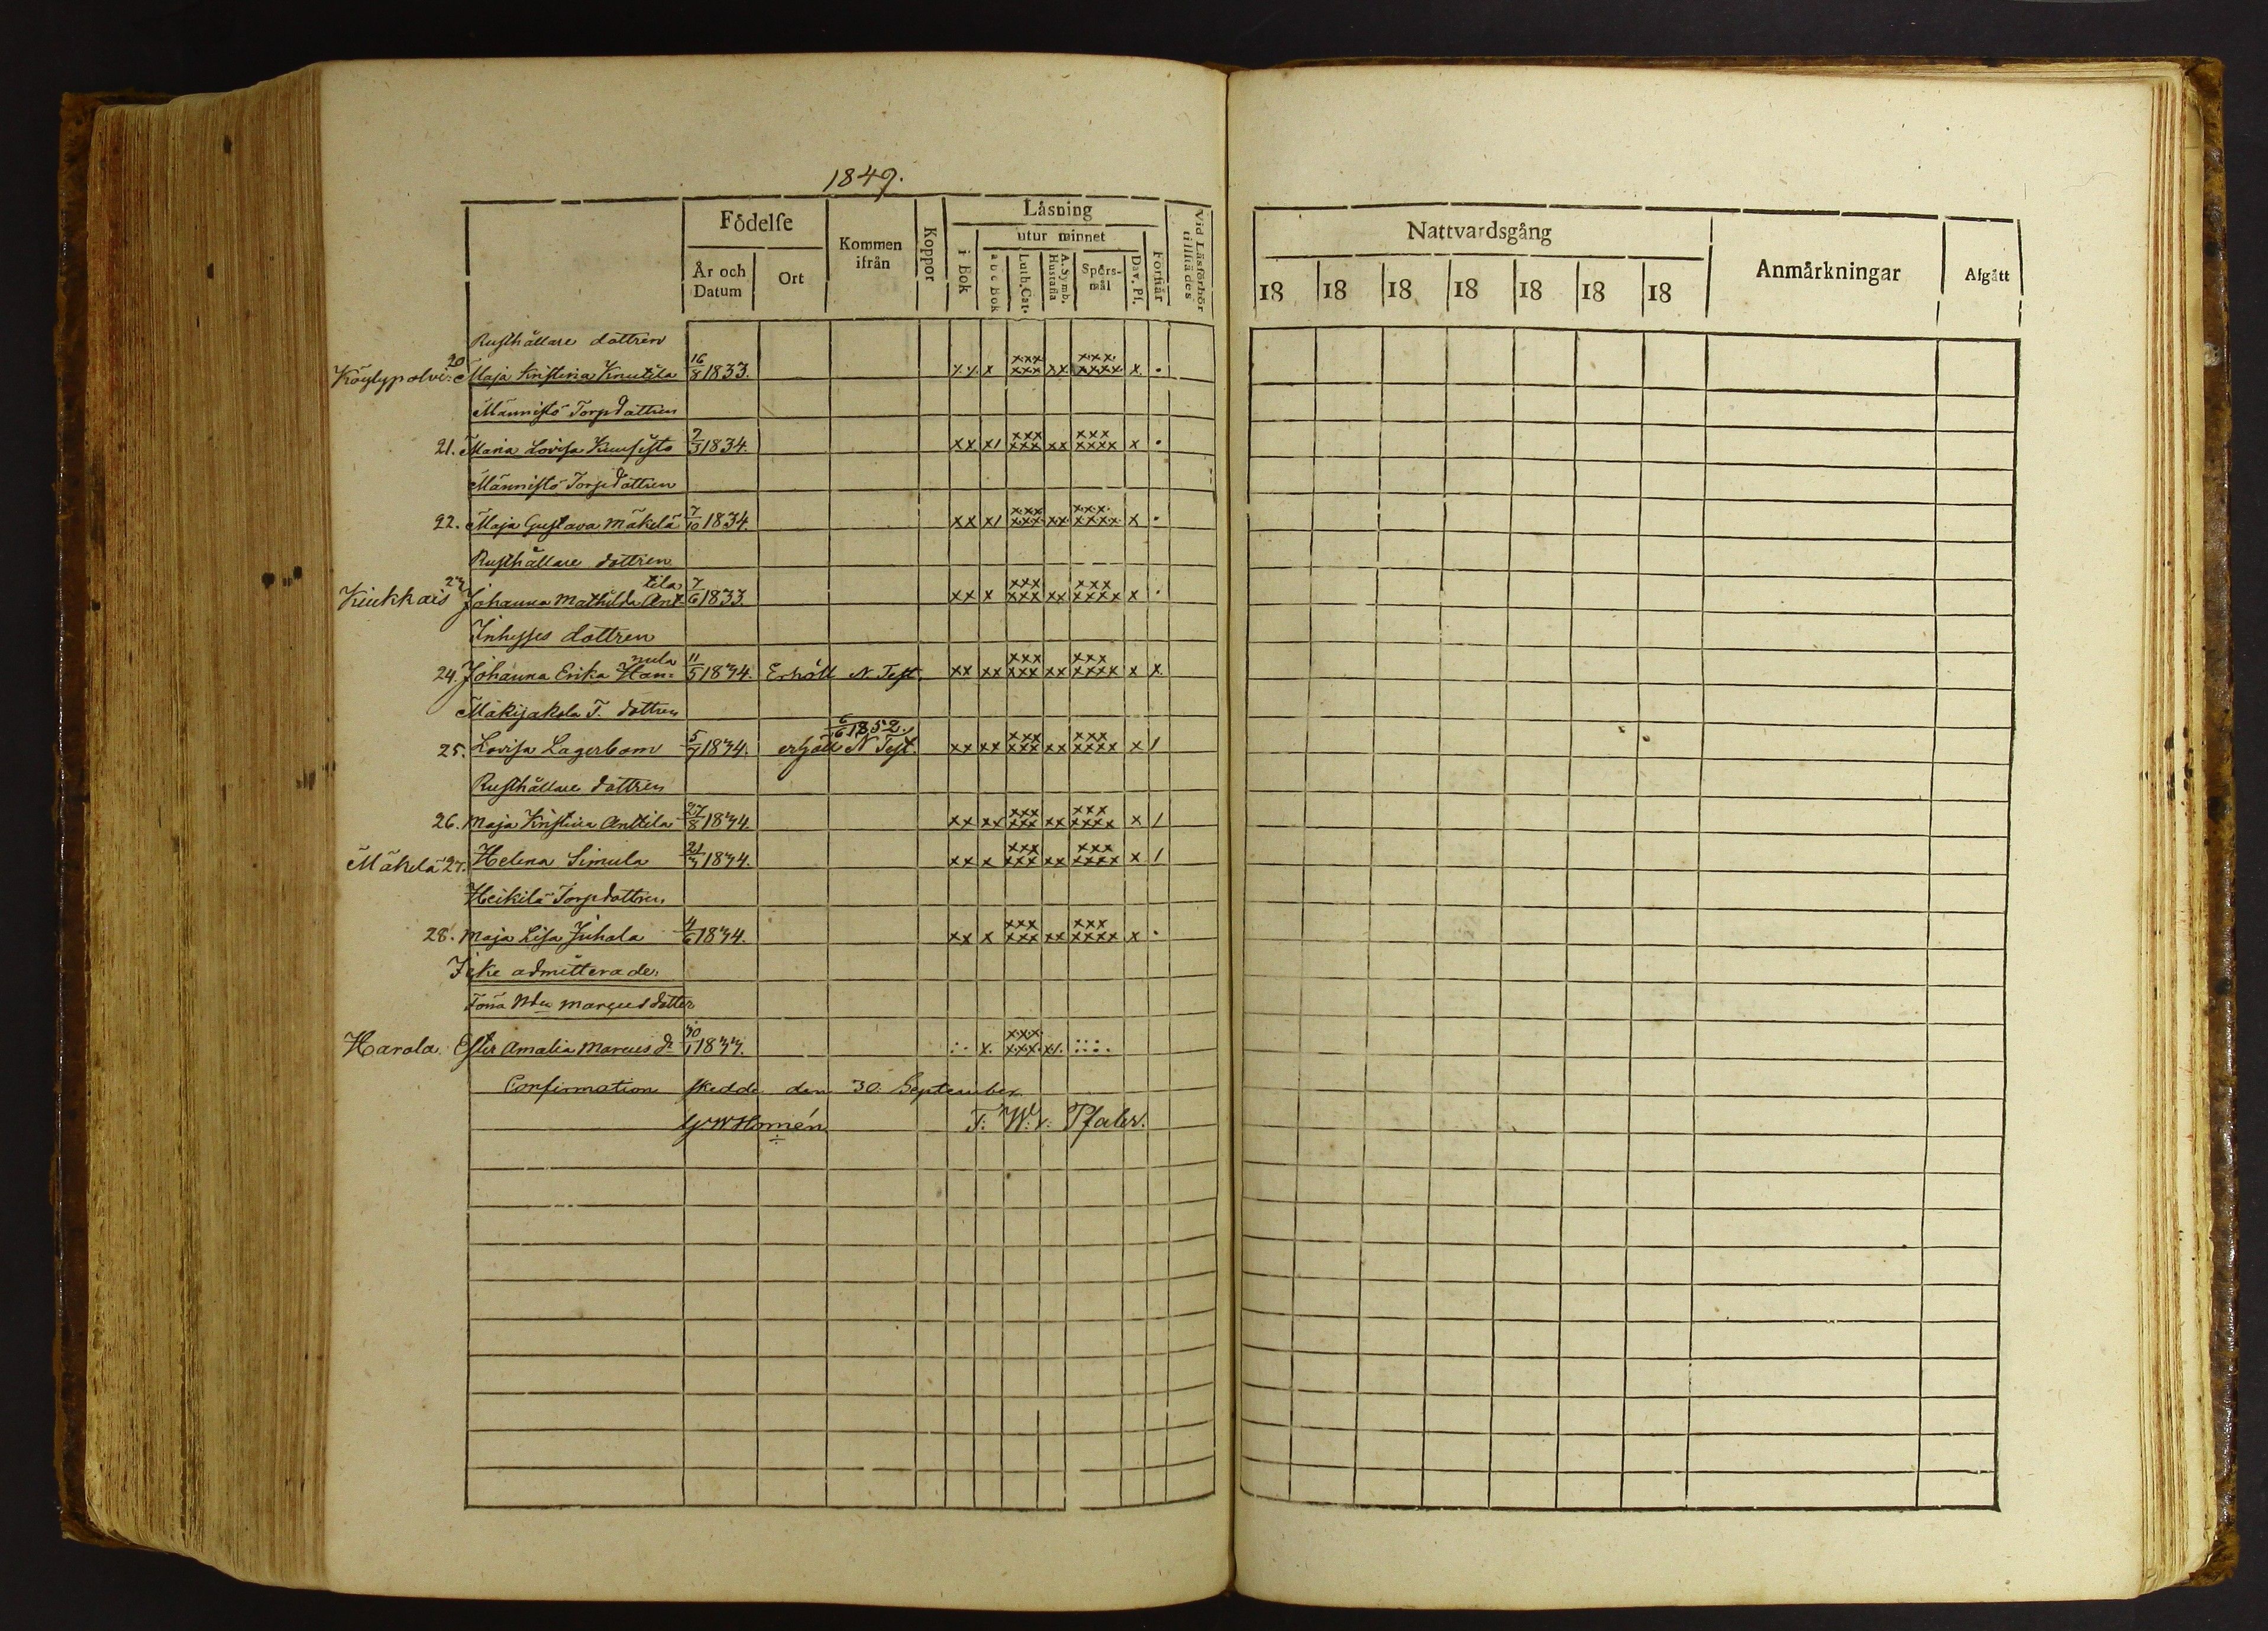 1849.
Födelse
År och Datum
Ort
Kommen ifrån
Koppor
Låsning
i Bok
utur minnet
a b c Bok
Luth. Cat.
A. Symb. Hustafla
Spörsmål
Dav. Ps.
Förstår
Vid Läsförhör tillstädes
Rusthållare dottren
Köylypolvi 20 Maja Kristina Knutila 16/8 1833. xx x xxx xxx xx xxx xxxx x .
Männistö Torpdottren
21. Maria Lovisa Kuusisto 2/3 1834. xx x/ xxx xxx xx xxx xxxx x .
Männistö Torpdottren
22. Maja Gustava Mäkelä 7/10 1834. xx x/ xxx xxx xx xxx xxxx x .
Rusthållare dottren
Kiukkais 23 Johanna Mathilda Anttila 7/6 1833. xx x xxx xxx xx xxx xxxx x .
Inhyses dottren
24. Johanna Erika Hannula 11/5 1834. Erhöll N. Test. xx xx xxx xxx xx xxx xxxx x x
Mäkijakola T. dottren
6/6 1852.
25. Lovisa Lagerbom 5/7 1834. erhöll N Test. xx xx xxx xxx xx xxx xxxx x /
Rusthållare dottren
26. Maja Kristina Anttila 27/8 1834. xx xx xxx xxx xx xxx xxxx x /
Mäkelä 27. Helena Simula 21/3 1834. xx x xxx xxx xx xxx xxxx x /
Heikilä Torpdottren
28. Maja Lisa Juhola 4/6 1834. xx x xxx xxx xx xxx xxxx x .
Icke admitterade.
Marcusdotter
Harola Ester Amalia Marcus dr 30/1 1833. x. xxx xxx x/.
Confirmation skedde den 30. September
G W Homén F. W. v. Pfaler.
Nattvardsgång
18 18 18 18 18 18 18
Anmärkningar
Afgått